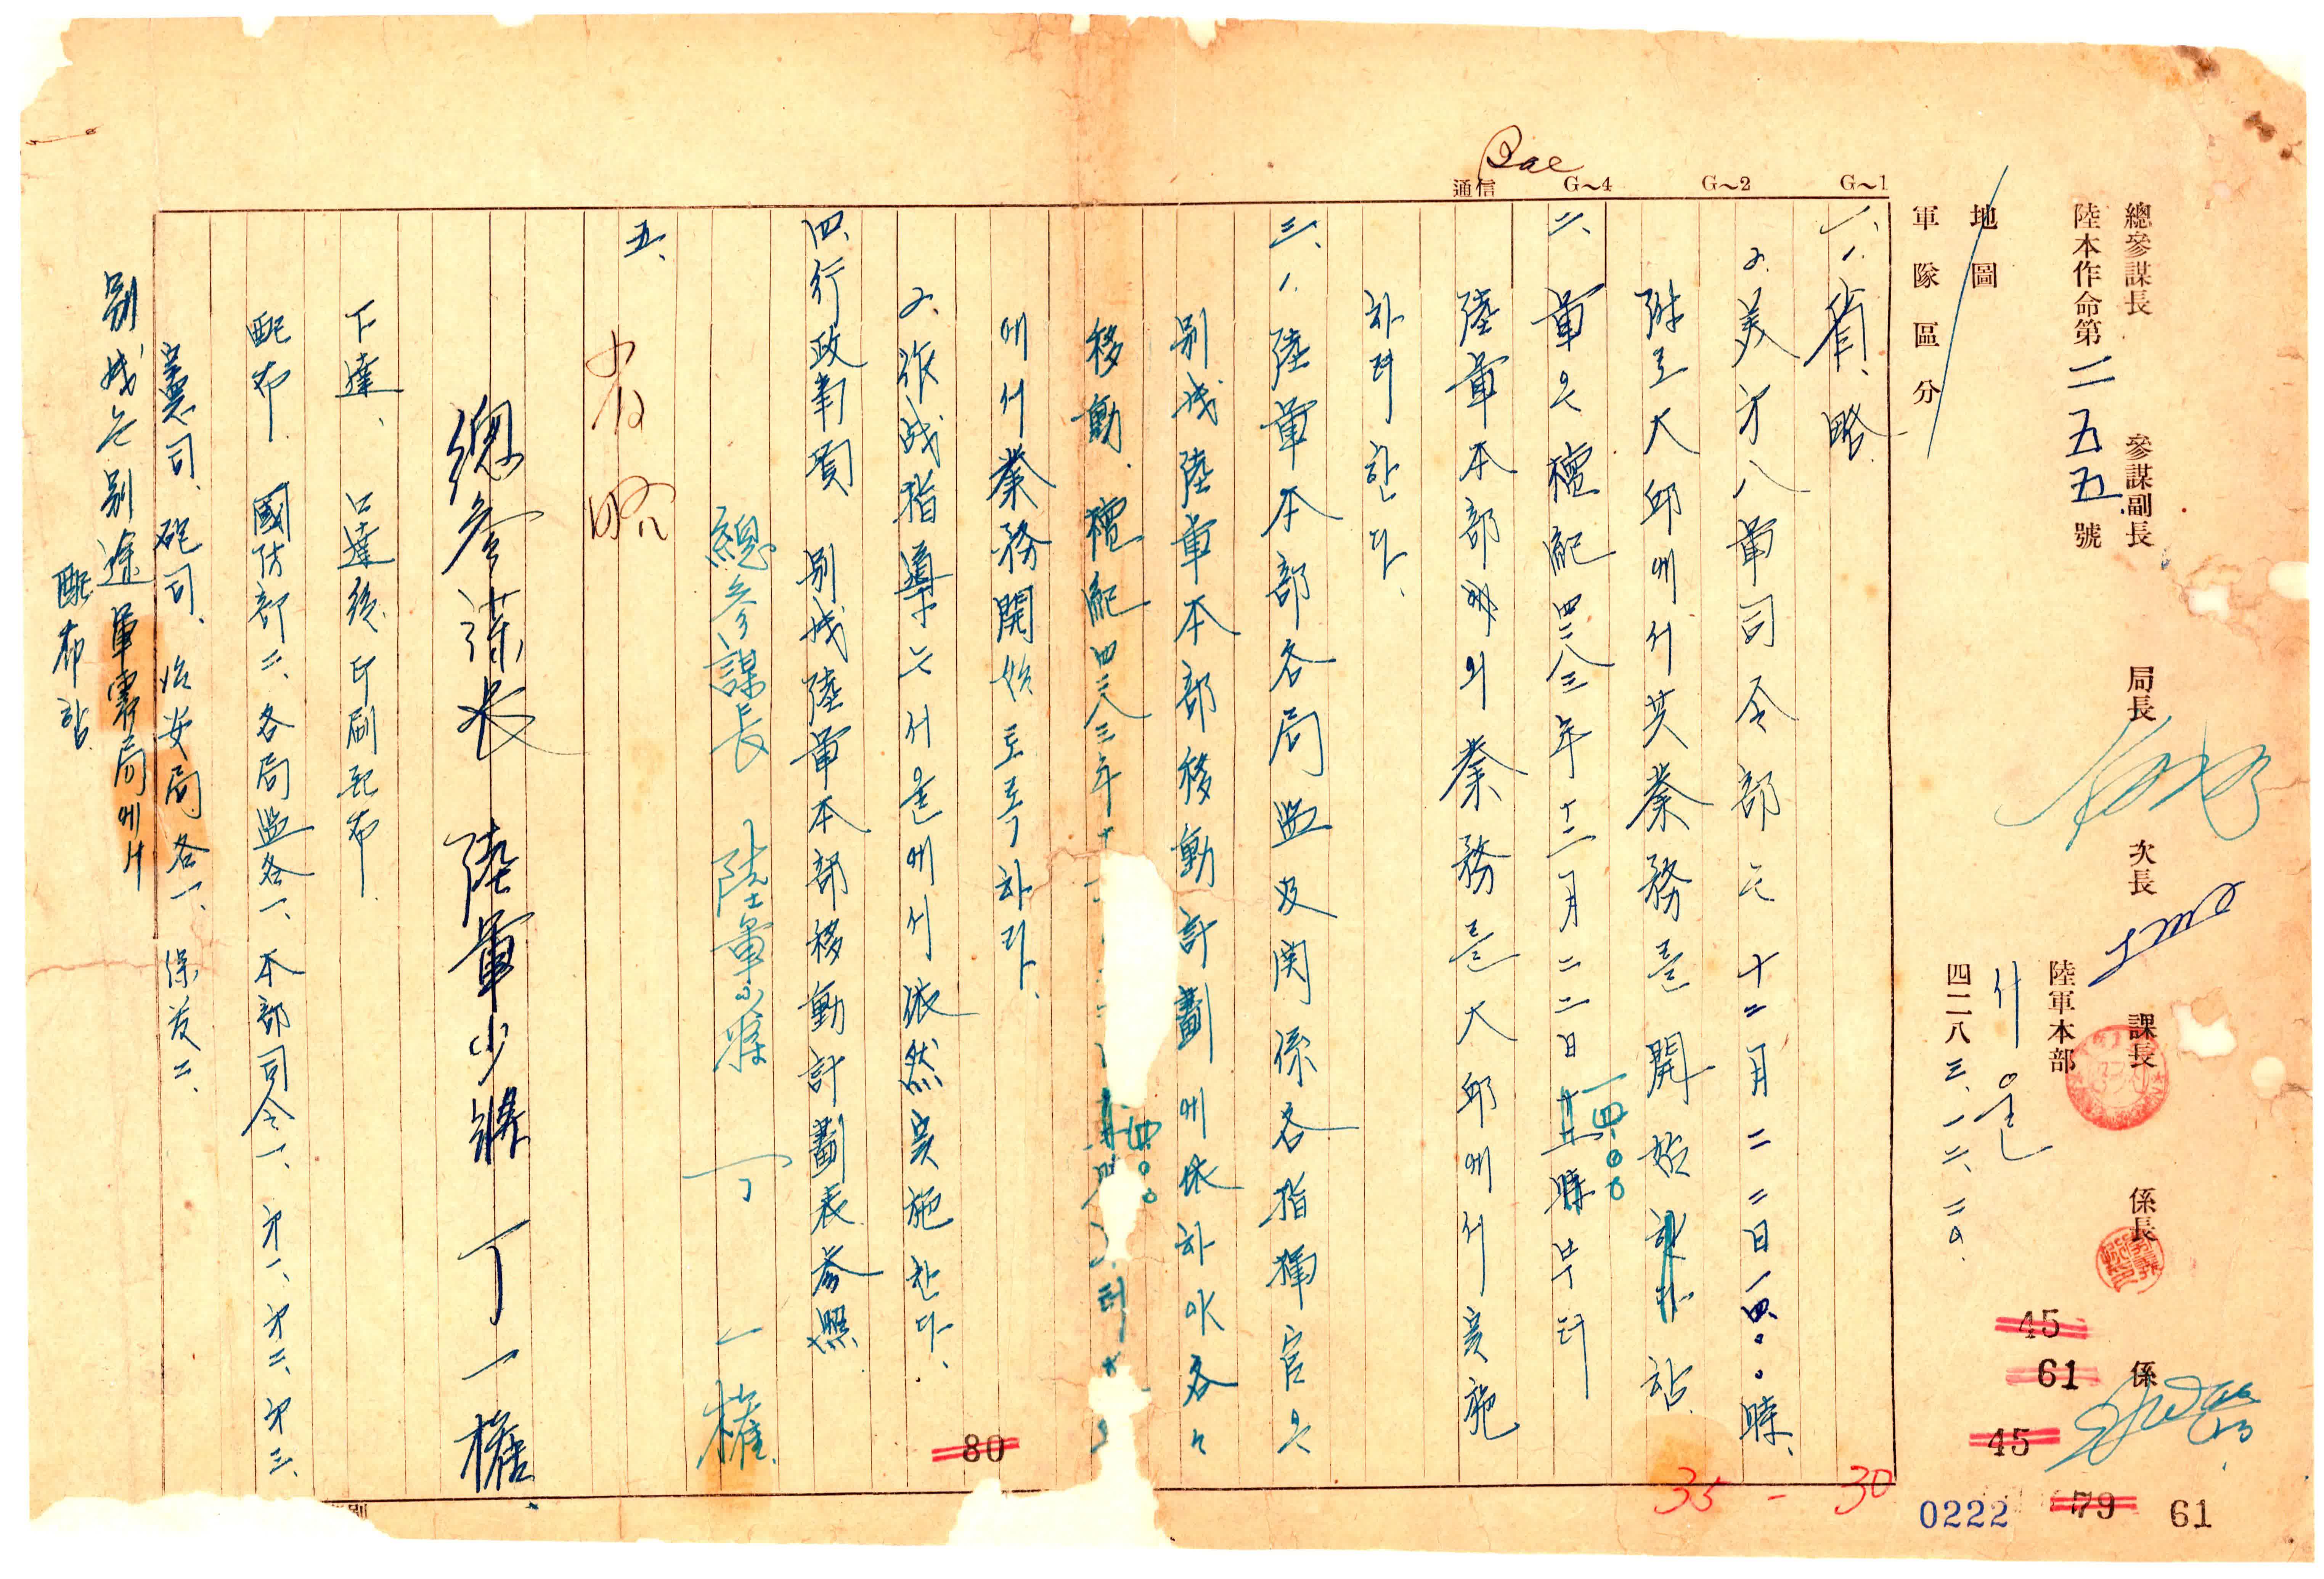 總參謀長 參謀副長 局長 次長 課長 係長 係
陸本作命第二五五號
陸軍本部
서울
四二八三、一二、二〇、
地圖
軍隊區分
G~1 G~2 G~4 通信
Bae
一、1. 省略
2. 美才八軍司令部는 十二月二二日一四〇〇時、
附로 大邱에서 其業務를 開始
二、軍은 檀紀四二八三年十二月二二日 一四〇〇 부터
陸軍本部의 業務를 大邱에서 実施
하려 한다.
三、1. 陸軍本部各局監及関係各指揮官은
別紙陸軍本部移動計劃에 依하야 各々
移動、檀紀四二八三年十 一四〇〇
에서 業務開始토록 하라.
2. 作战指導는 서울에서 依然実施한다.
四、行政事項 別紙陸軍本部移動計劃表參照
總參謀長 陸軍少將 丁一權
五、省略
總參謀長 陸軍少將 丁一權
下達、口達後印刷配布
配布 國防部二、各局監各一、本部司令一、才一、才二、才三、
憲司、砲司、治安局各一、保发二、
別紙는 別途 軍需局에서
配布함
80
35 - 30
45
61
45
0222 79 61